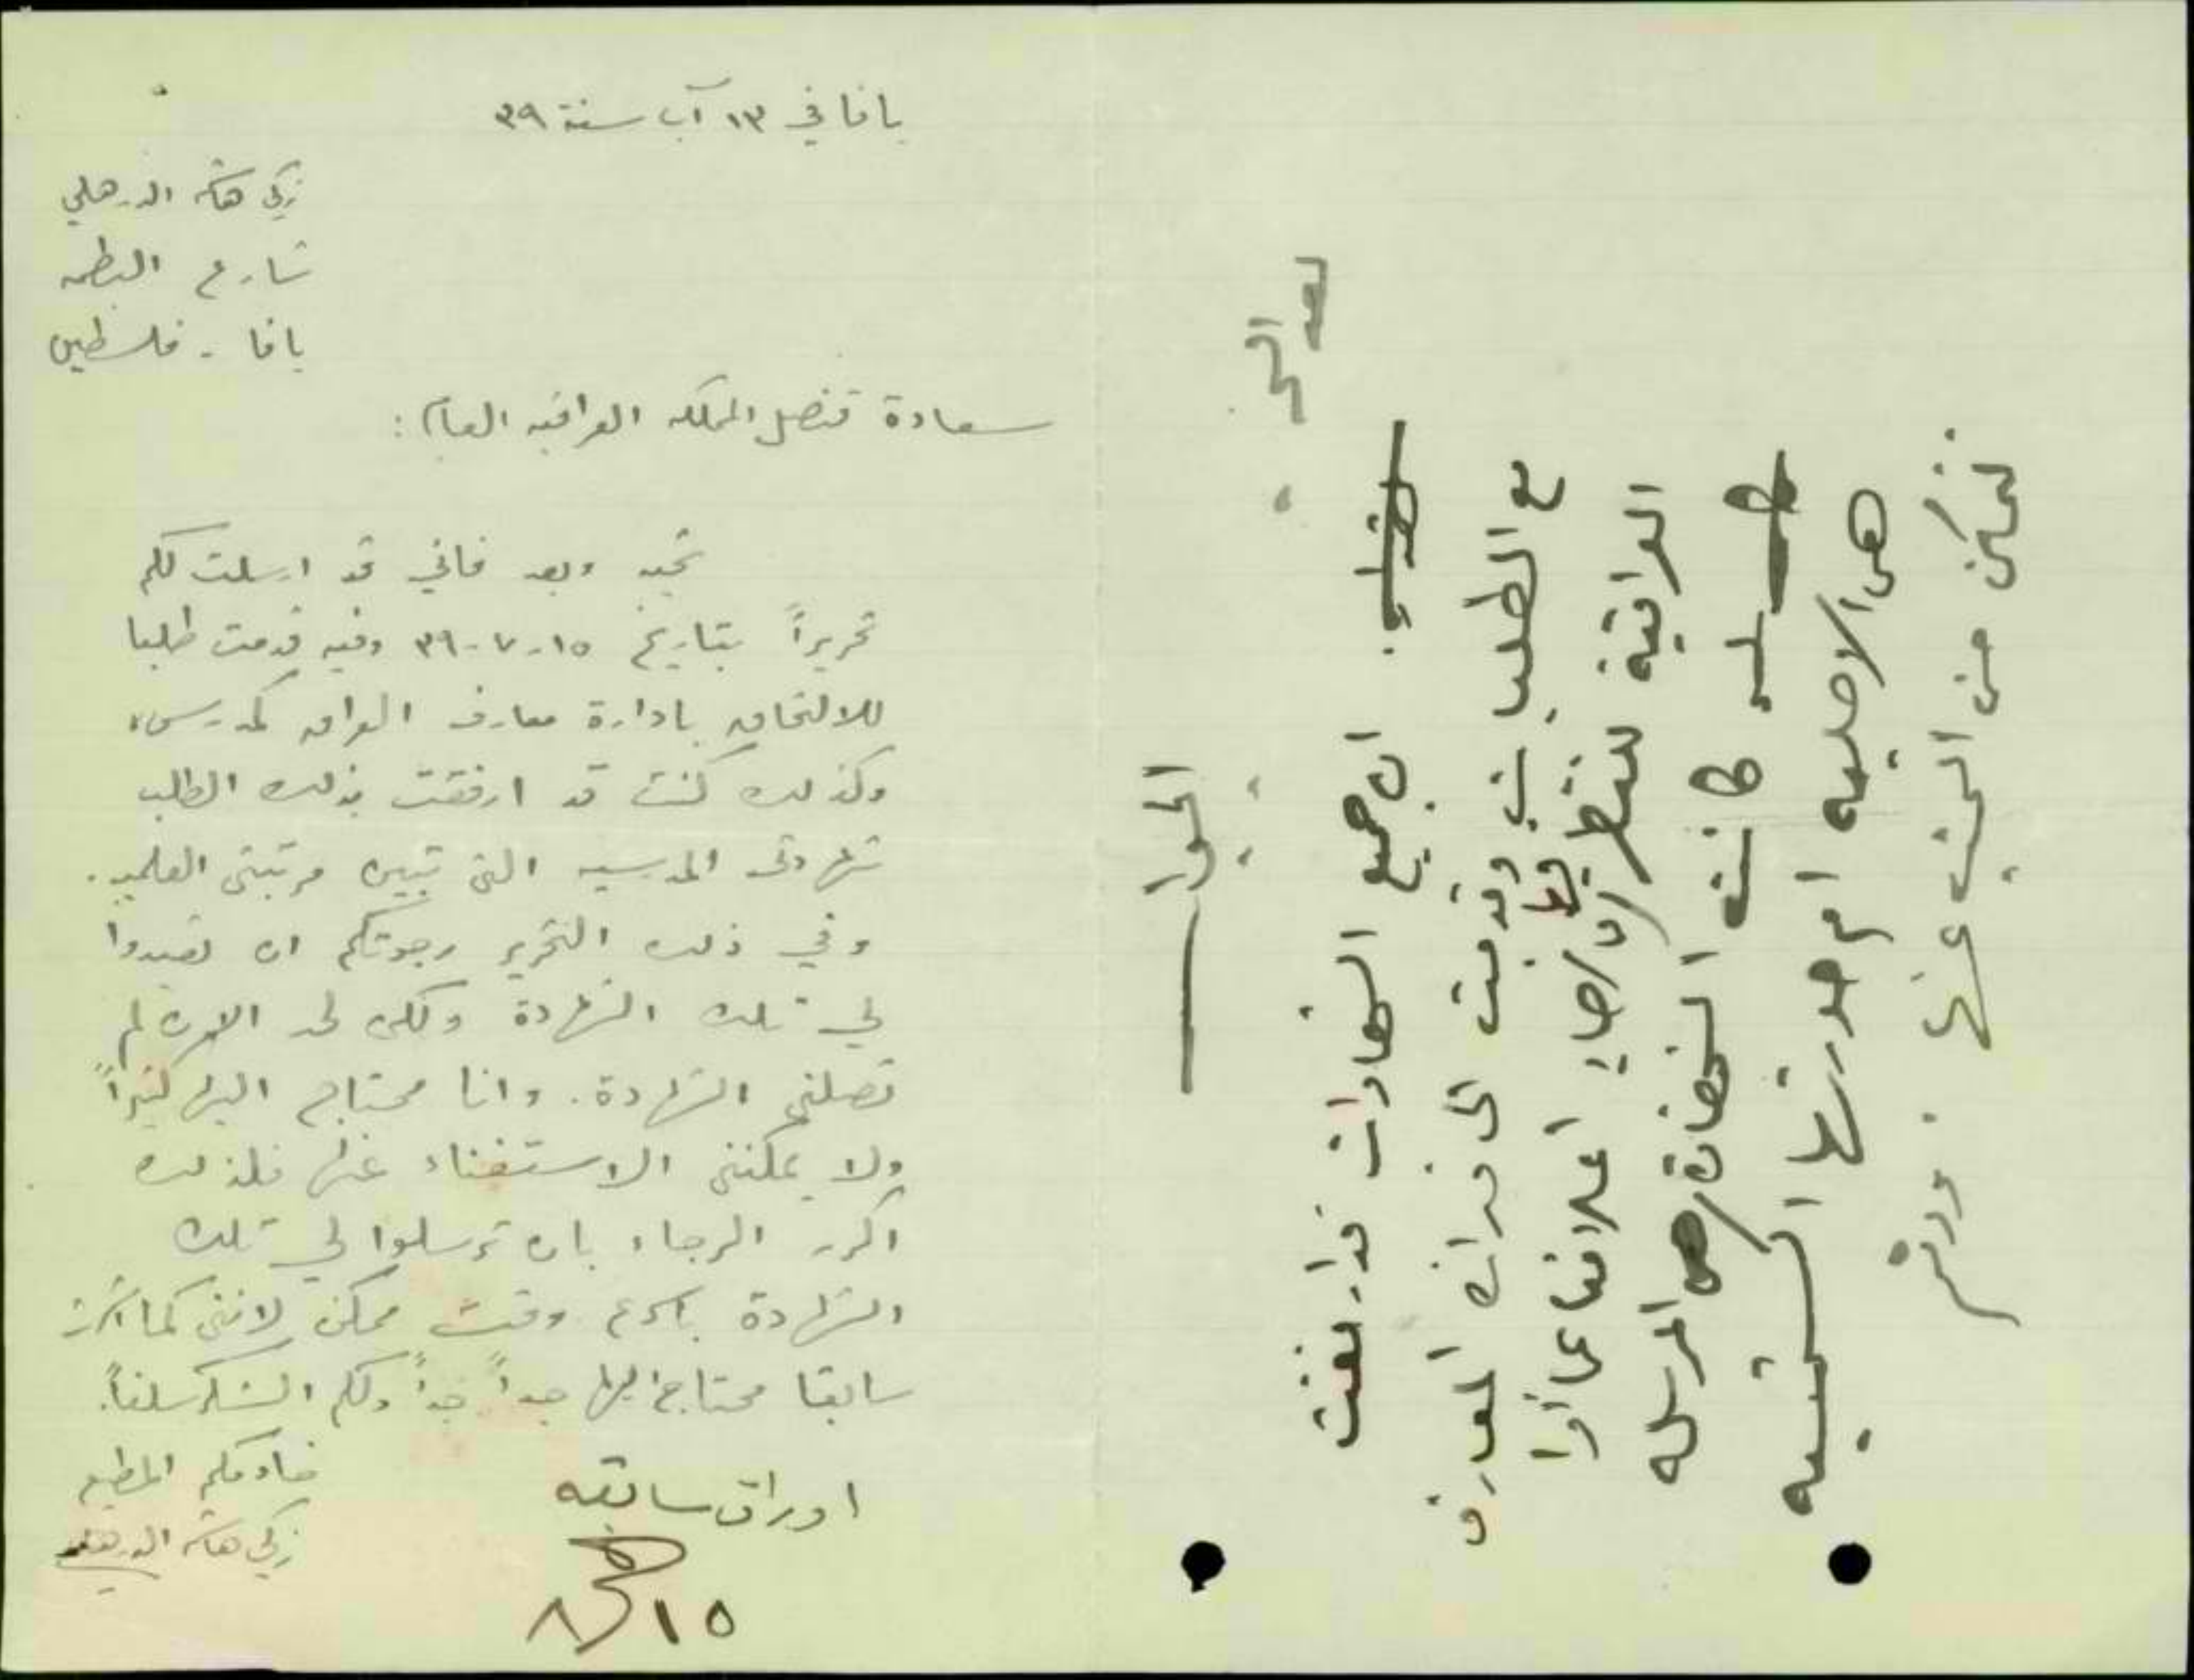 يافا في ١٣ آب سنة ٣٩
زكي هاشم الدرهلي
شارع البطمه
يافا - فلسطين
سعادة قنصل المملكه العراقيه العام :
تحيه وبعد فاني قد ارسلت لكم
تحريراً بتاريخ ١٥-٧-٣٩ وفيه قدمت طلبا
للالتحاق بادارة معارف العراق كمدرس،
وكذلك كنت قد ارفقت بذلك الطلب
شهادتي المدرسيه التي تبين مرتبتي العلميه.
وفي ذلك التحرير رجوتكم ان تعيدوا
لي تلك الشهادة ولكن لحد الان لم
تصلني الشهادة. وانا محتاج اليها كثيراً
ولا يمكنني الاستغناء عنها فلذلك
اكرر الرجاء بان ترسلوا لي تلك
الشهادة باسرع وقت ممكن لانني كما ذكرت
سابقا محتاج اليها جداً جداً ولكم الشكر سلفاً.
خادمكم المطيع
زكي هاشم الدرهلي
اوراق سابقه
١٥/٨
الجواب
بعد التحيه
ان جميع الشهادات قد ارفقت
مع الطلبات وقدمت الى وزارة المعارف
العراقية للنظر فيها الرجاء اعلامنا عما اذا
كانت الشهادة المرسله
هي الاصليه ام صورتها الشمسيه
لنتمكن من البحث عنها. ودمتم